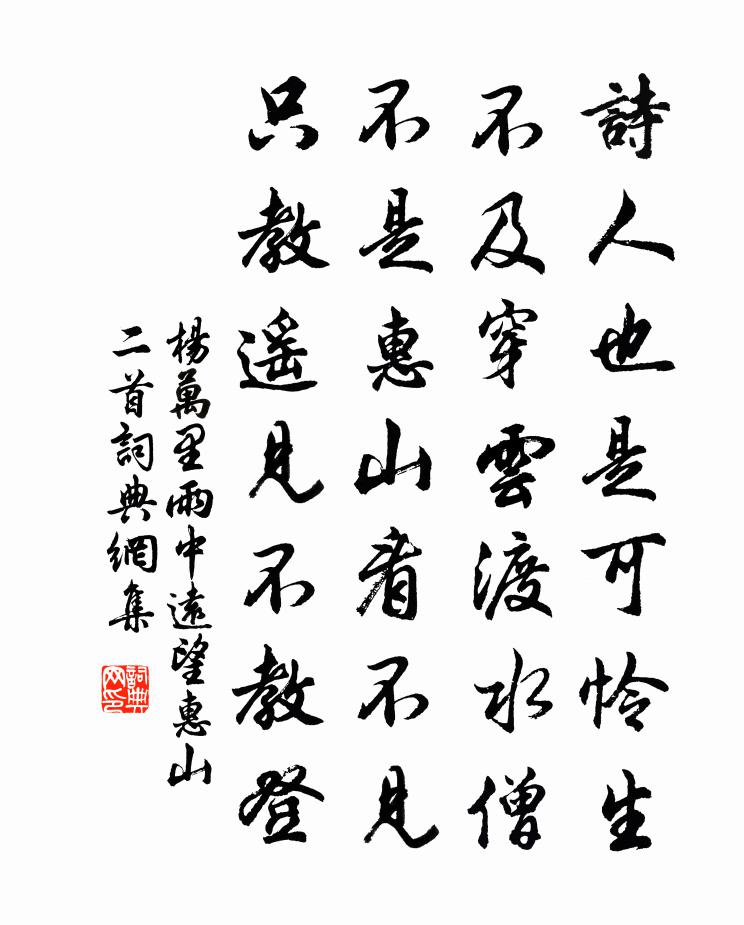 詩人也是可怜生
不及穿雲渡水僧
不是惠山看不見
只教遥見不教登
楊萬里雨中遠望惠山
二首詞典網集
詞典
网印